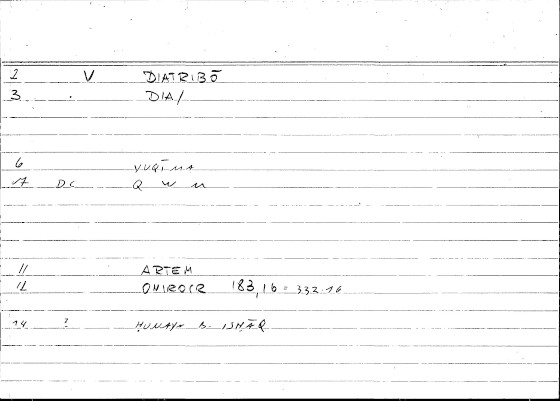 2 V DIATRIBŌ
3 . DIA/
6 YUQĪMA
17 DC Q W M
11 ARTEM
12 ONIROCR 183,16 = 332.16
14 ? ḤUNAYN B. ISḤĀQ